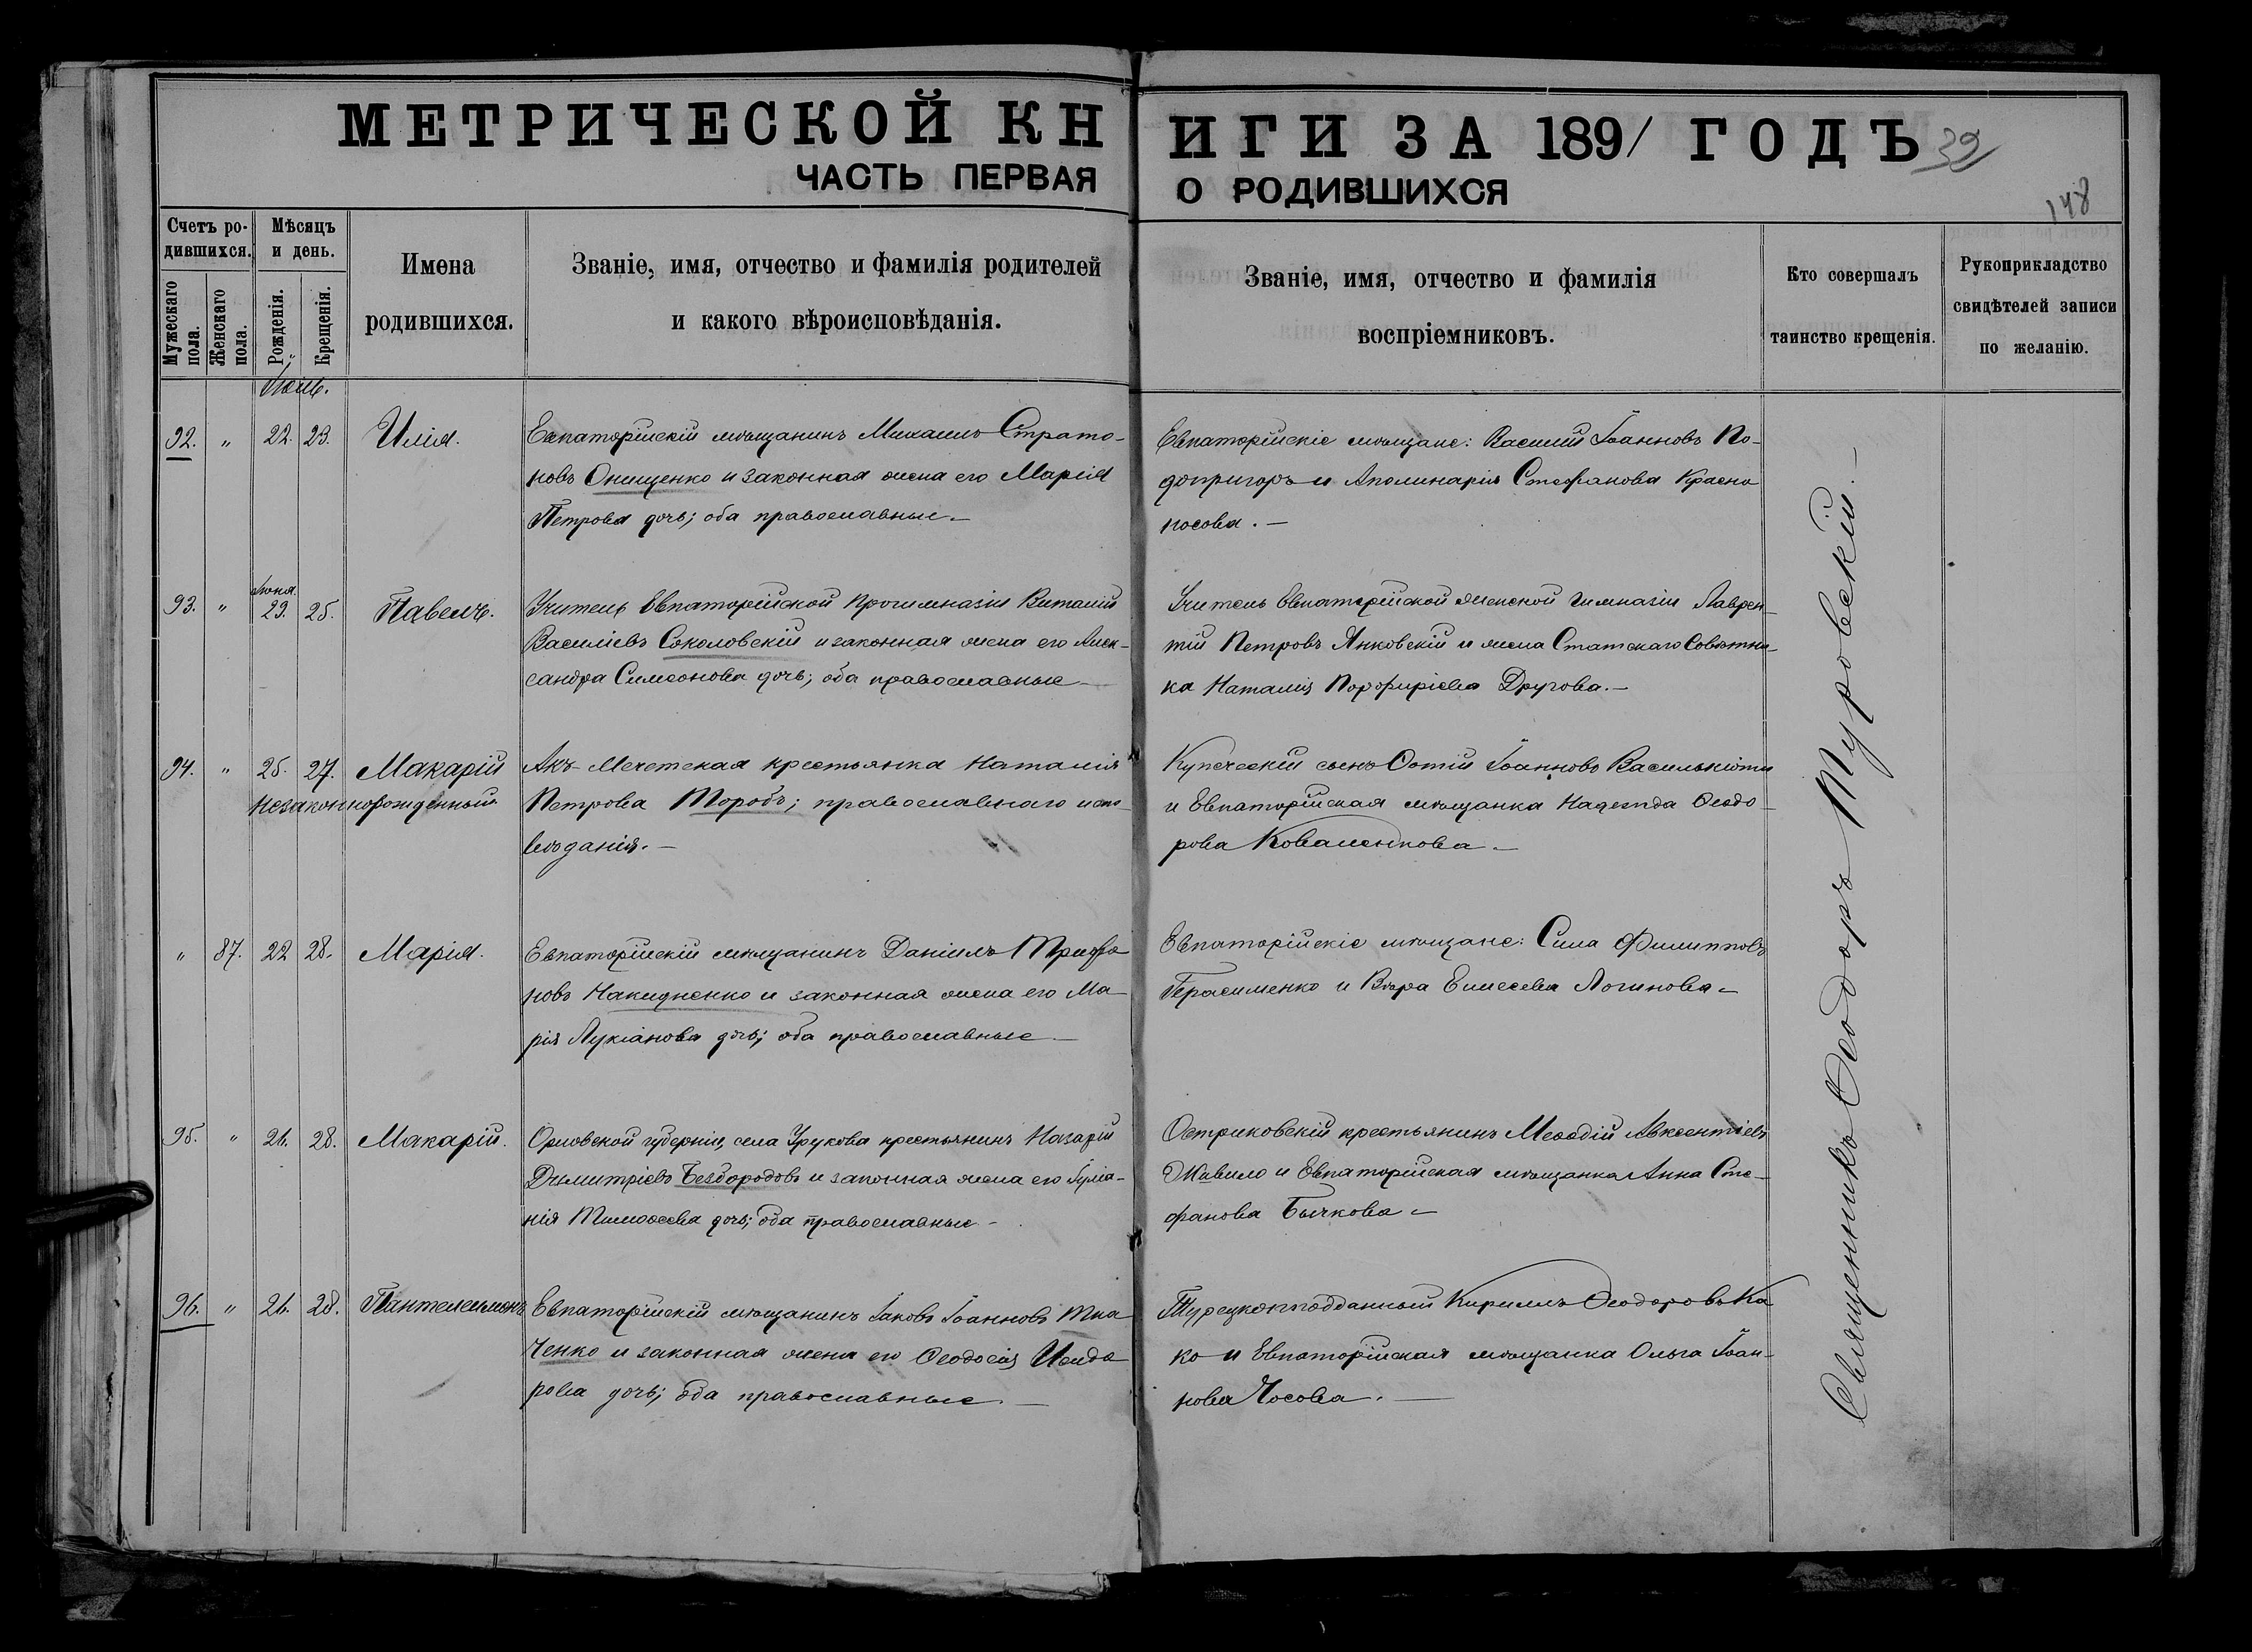 МЕТРИЧЕСКОЙ КНИГИ ЗА 1891 ГОДЪ 39
ЧАСТЬ ПЕРВАЯ О РОДИВШИХСЯ
148
Счетъ ро-
дившихся.
Мужескаго
пола.
Женскаго
пола.
Мѣсяцъ
и день.
Рожденія.
Крещенія.
Имена
родившихся.
Званіе, имя, отчество и фамилія родителей
и какого вѣроисповѣданія.
Званіе, имя, отчество и фамилія
воспріемниковъ.
Кто совершалъ
таинство крещенія.
Рукоприкладство
свидѣтелей записи
по желанію.
92. " 22. 23. Илія.
Евпаторійскій мѣщанинъ Михаилъ Страто-
новъ Онищенко и законная жена его Марія
Петрова дочь; оба православные.—
Евпаторійскіе мѣщане: Василій Іоанновъ По-
допригоръ и Аполинарія Стефанова Красно
носова.—
93. " 23. 25. Павелъ.
Учитель Евпаторійской Прогимназіи Виталій
Василіевъ Соколовскій и законная жена его Алек-
сандра Симеонова дочь; оба православные—
Учитель Евпаторійской женской гимназіи Лаврен-
тій Петровъ Янковскій и жена Статскаго Совѣтни-
ка Наталія Порфиріева Другова.—
94. " 25. 27. Макарій
незаконнорожденный
Акъ-Мечетская крестьянка Наталія
Петрова Моробъ; православнаго испо-
вѣданія.—
Купеческій сынъ Фотій Іоанновъ Василькіоти
и Евпаторійская мѣщанка Надежда Ѳеодо-
рова Коваленкова—
" 87. 22 28. Марія.
Евпаторійскій мѣщанинъ Даніилъ Трифо
новъ Накидненко и законная жена его Ма-
рія Лукіанова дочь; оба православные—
Евпаторійскіе мѣщане: Сила Филипповъ
Герасименко и Вѣра Елисеева Логинова—
95. " 26. 28. Макарій.
Орловской губерніи, села Урукова крестьянинъ Назарій
Димитріевъ Безбородовъ и законная жена его Іуліа-
нія Тимоѳеева дочь; оба православные—
Остриковскій крестьянинъ Меѳодій Авксентіевъ
Живило и Евпаторійская мѣщанка Анна Сте-
фанова Бычкова—
96. " 26. 28. Пантелеимонъ
Евпаторійскій мѣщанинъ Іаковъ Іоанновъ Тка
ченко и законная жена его Ѳеодосія Исидо
рова дочь; оба православные.—
Турецкоподданный Кириллъ Ѳеодоровъ Ка
ко и Евпаторійская мѣщанка Ольга Іоан-
нова Чосова.—
Священникъ Ѳеодоръ Туровскій.—